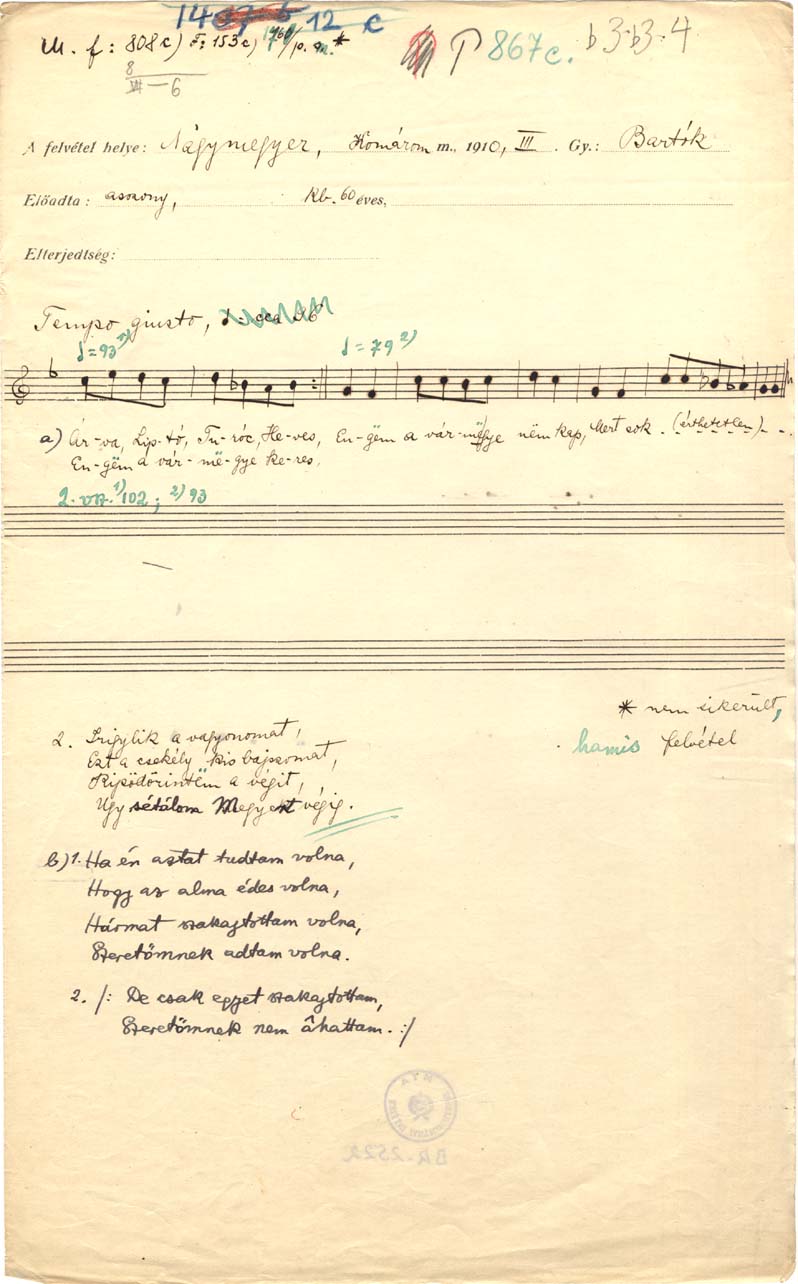 12 c
M. f: 808c) F: 153c) 1760/p. a. m. * P 867c. b3-b3-4
8
VII—6
A felvétel helye: Nagymegyer, Komárom m., 1910, III. Gy.: Bartók
Előadta: asszony, Kb. 60 éves,
Elterjedtség:
Tempo giusto, ♩= cca 96
♩=93 1) ♩=79 2)
a) Ár-va, Lip-tó, Tu-róc, He-ves, En-gëm a vár-mëgye nëm kap, Mert sok - (érthetetlen) - - -
En-gëm a vár-më-gye ke-res,
2. vsz. 1) 102; 2) 93
* nem sikerült,
hamis felvétel
2. Irigylik a vagyonomat,
Ezt a csekély kis bajszomat,
Kipödörintëm a végit,
Úgy sétálom Megyert végig.
b) 1. Ha én asztat tudtam volna,
Hogy az alma édes volna,
Hármat szakajtottam volna,
Szeretőmnek adtam volna.
2. /: De csak egyet szakajtottam,
Szeretőmnek nem âhattam. :/
BR-252a